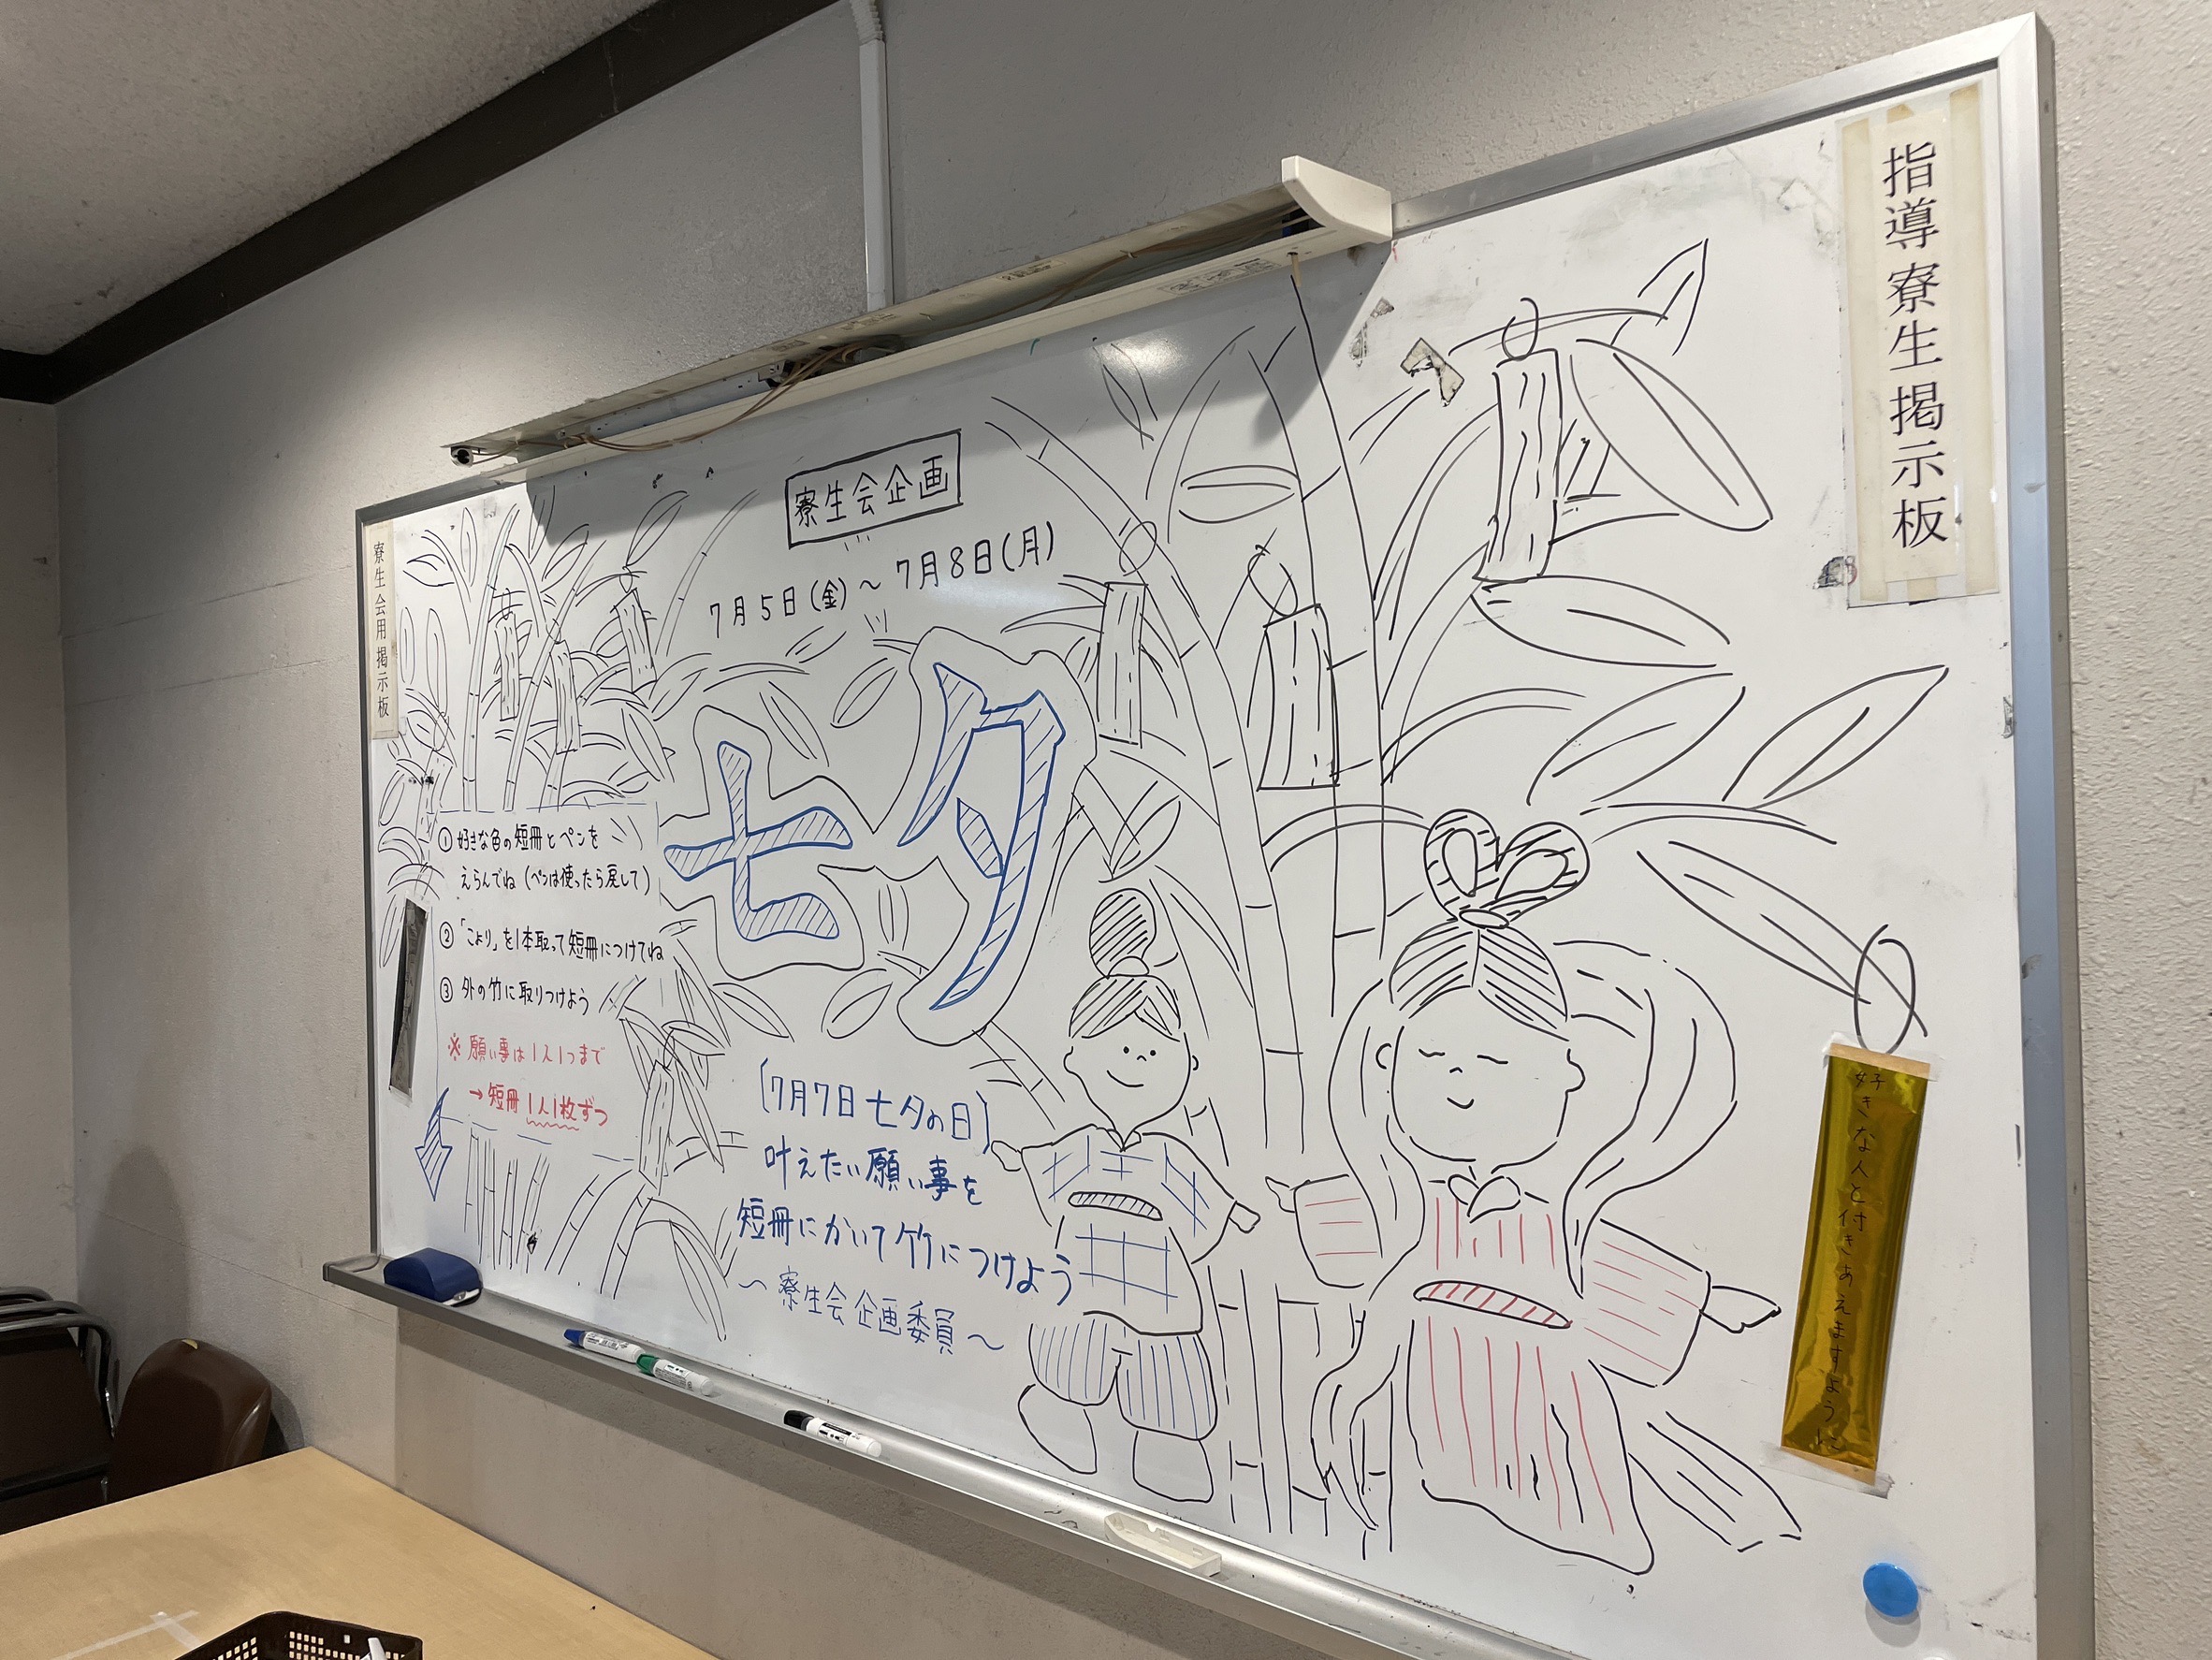 指導寮生掲示板
寮生会用掲示板
寮生会企画
7月5日(金)～7月8日(月)
七夕
① 好きな色の短冊とペンを
えらんでね(ペンは使ったら戻して)
②「こより」を1本取って短冊につけてね
③ 外の竹に取りつけよう
※ 願い事は1人1つまで
→短冊1人1枚ずつ
[7月7日七夕の日]
叶えたい願い事を
短冊にかいて竹につけよう
～寮生会企画委員～
好きな人と付きあえますように